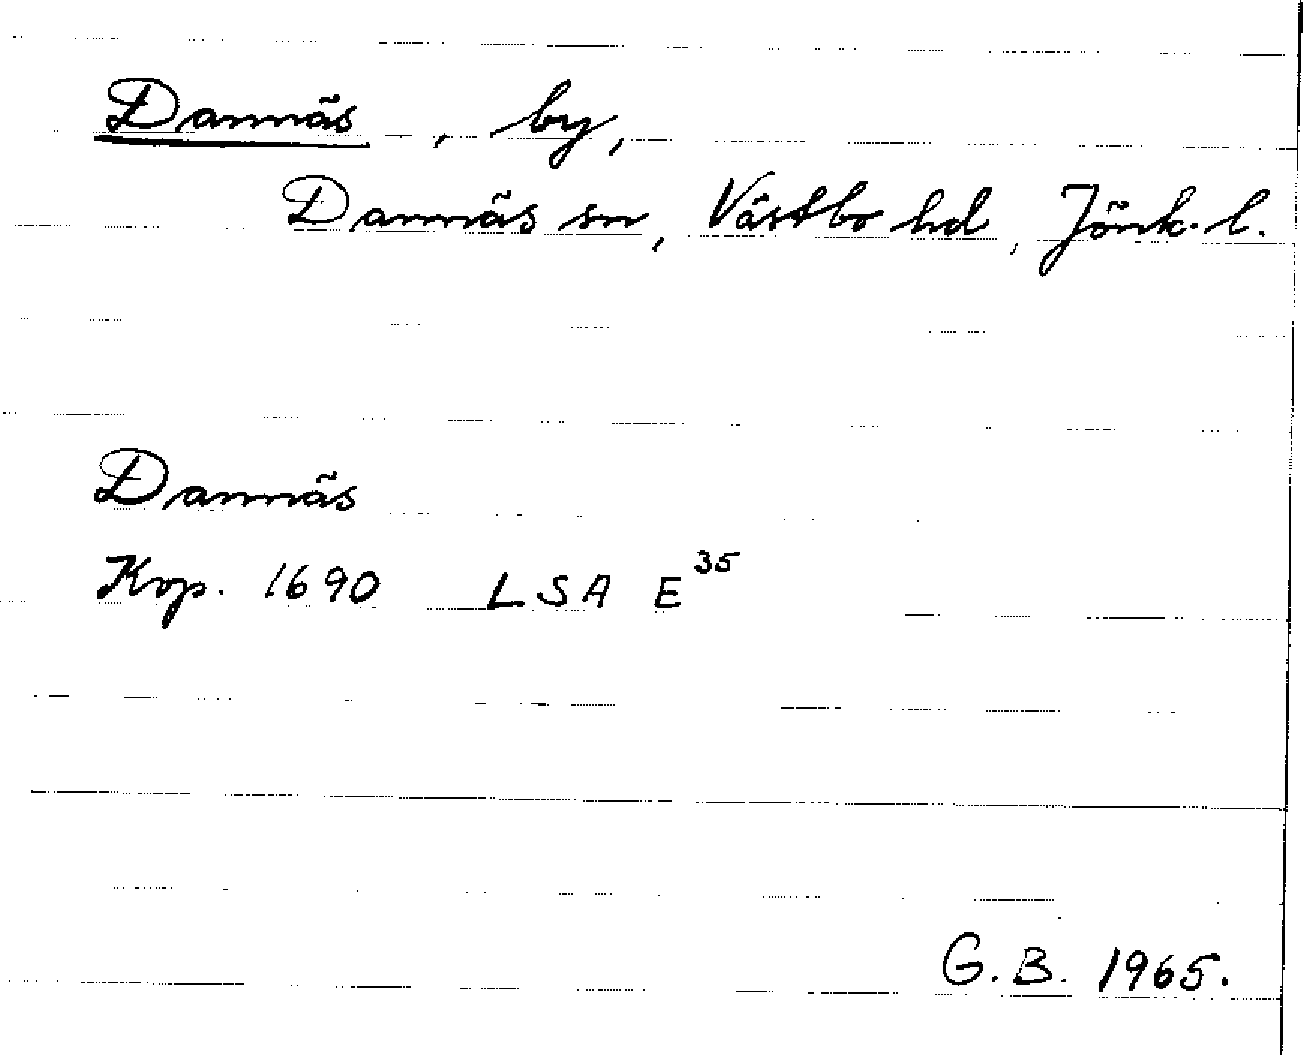 Dannäs, by,
Dannäs sn, Västbo hd, Jönk. l.
Dannäs
Kop. 1690 LSA E 35
G. B. 1965.